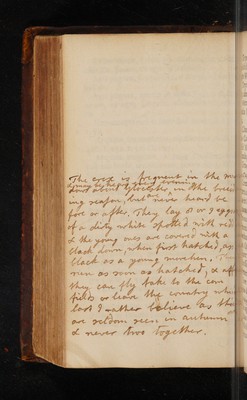 The crex is frequent in the
& may be heard every evening
about Gloucester, in the breed
ing season, but are never heard be
fore or after. They lay 8 or 9 eggs
of a dirty white spotted with red
& the young ones are covered with a
black down, when first hatched, as
black as a young moorhen. They
run as soon as hatched, & aft
they can fly take to the corn
fields or leave the country which
last I rather believe as they
are seldom seen in autumn
& never two together.